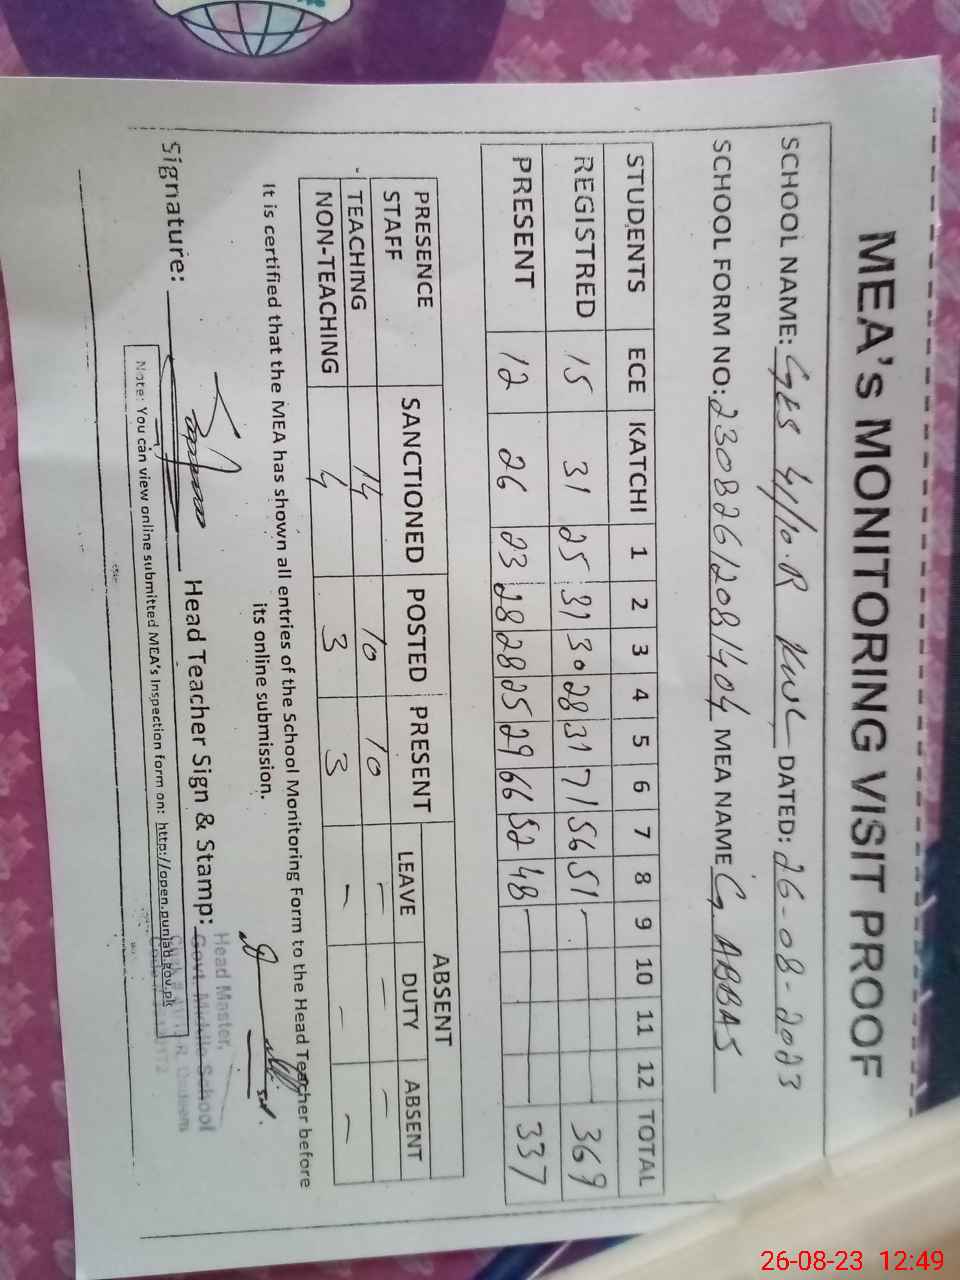 MEA's MONITORING VISIT PROOF
SCHOOL NAME: GES 4/10.R KWL DATED: 26-08-2023
SCHOOL FORM NO: 23082612081404 MEA NAME G. ABBAS
STUDENTS ECE KATCHI 1 2 3 4 5 6 7 8 9 10 11 12 TOTAL
REGISTRED 15 31 25 31 30 28 31 71 56 51 369
PRESENT 12 26 23 28 28 25 29 66 52 48 337
PRESENCE SANCTIONED POSTED PRESENT ABSENT
STAFF LEAVE DUTY ABSENT
TEACHING 14 10 10 - - -
NON-TEACHING 4 3 3 - - -
It is certified that the MEA has shown all entries of the School Monitoring Form to the Head Teacher before
its online submission.
Signature: Head Teacher Sign & Stamp:
Head Master,
Govt. Middle School
Note: You can view online submitted MEA's Inspection form on: http://open.punjab.gov.pk
26-08-23 12:49